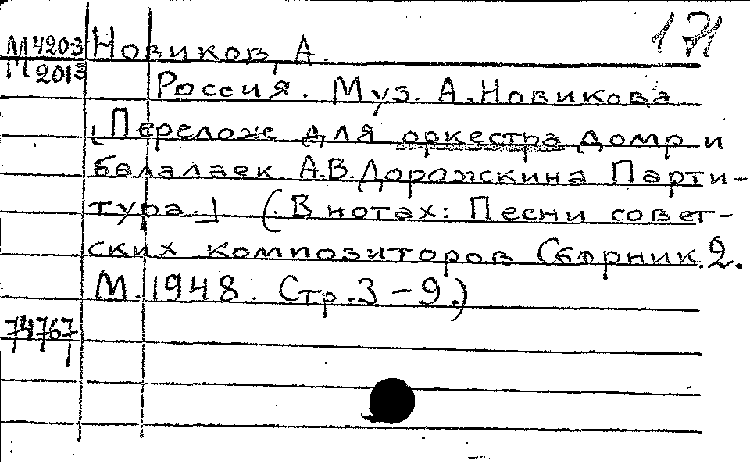 171
М4203 Новиков, А.
М2013
Россия. Муз. А. Новикова
[Перелож для оркестра домр и
балалаек А.В. Дорожкина Парти-
тура] (В нотах: Песни совет-
ских композиторов Сборник 2.
М. 1948. Стр. 3-9.)
74767